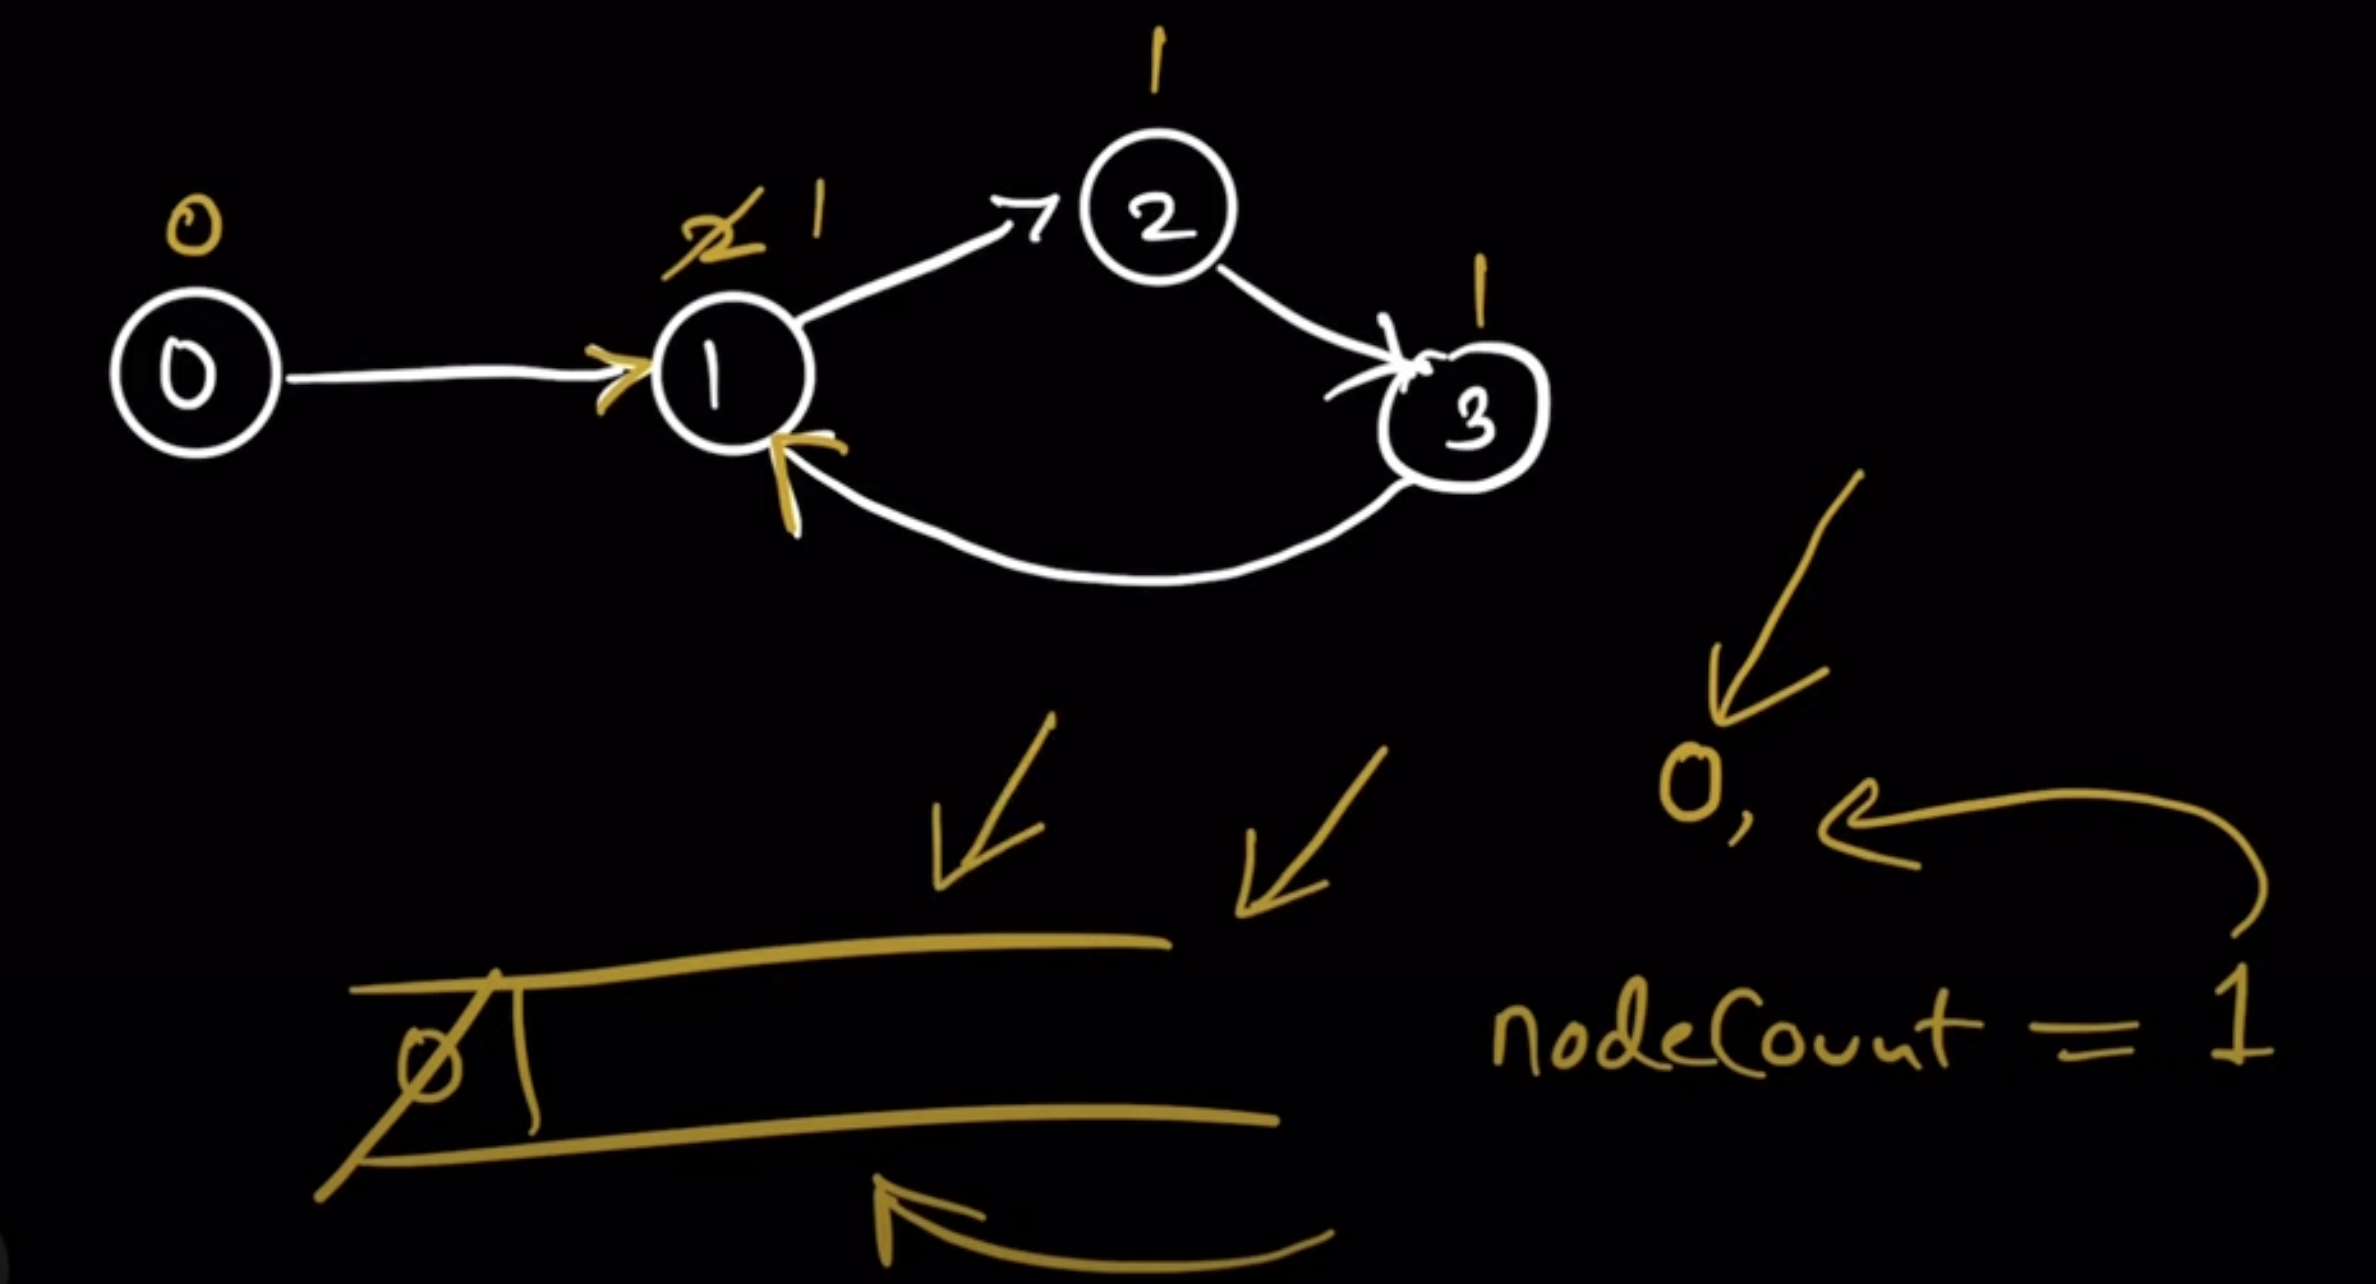 1
0 2 1
2
1
0 1
3
0,
0
nodeCount = 1